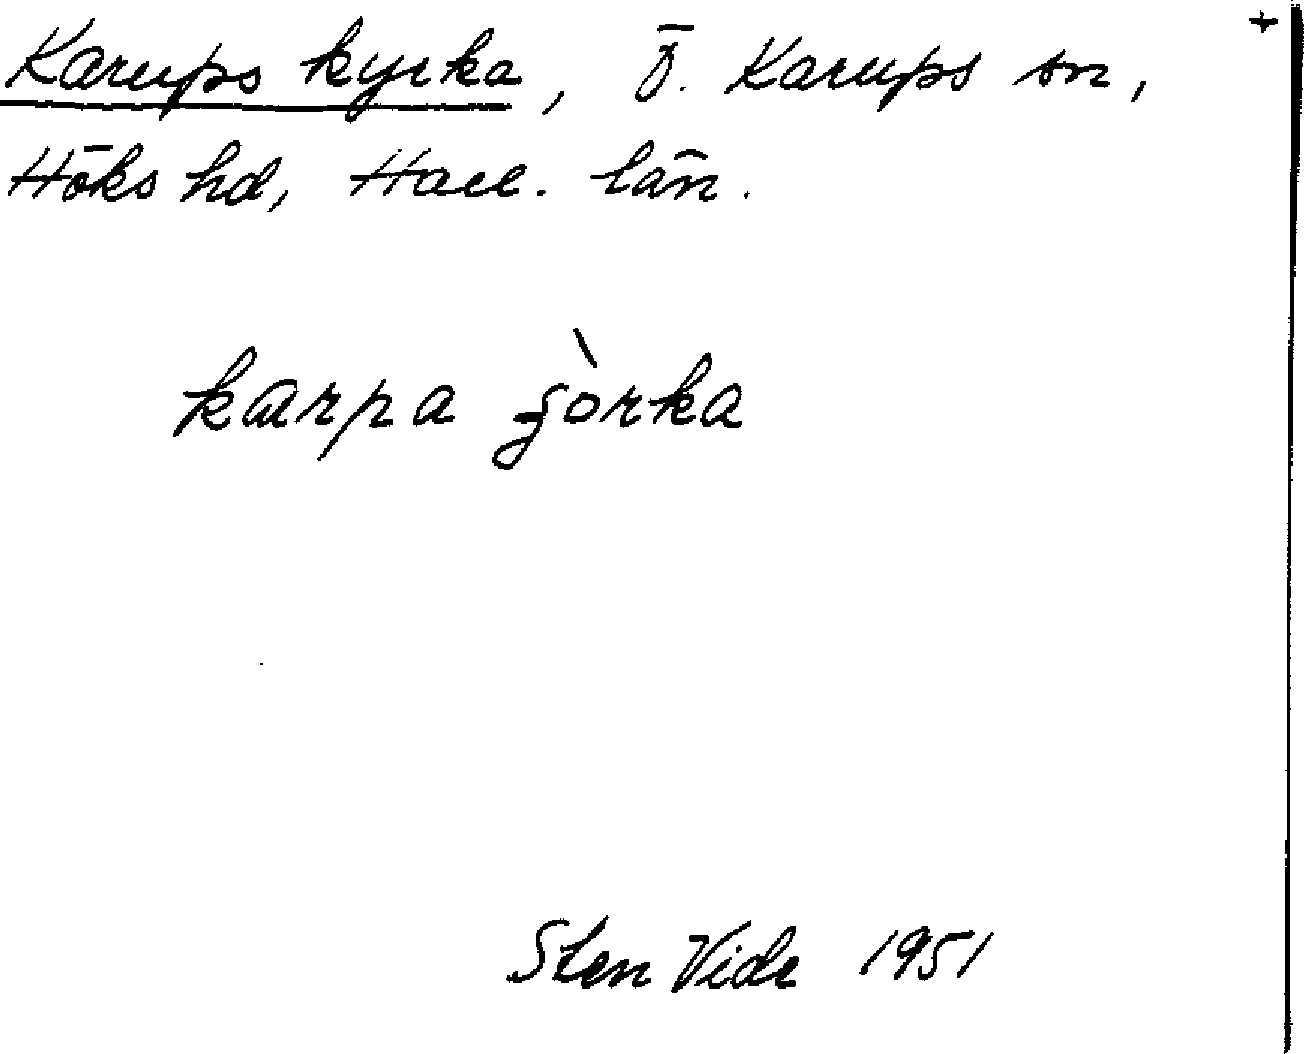 Karups kyrka, Ö. Karups sn, +
Höks hd, Hall. län.
karpa ʃòrka
Sten Vide 1951